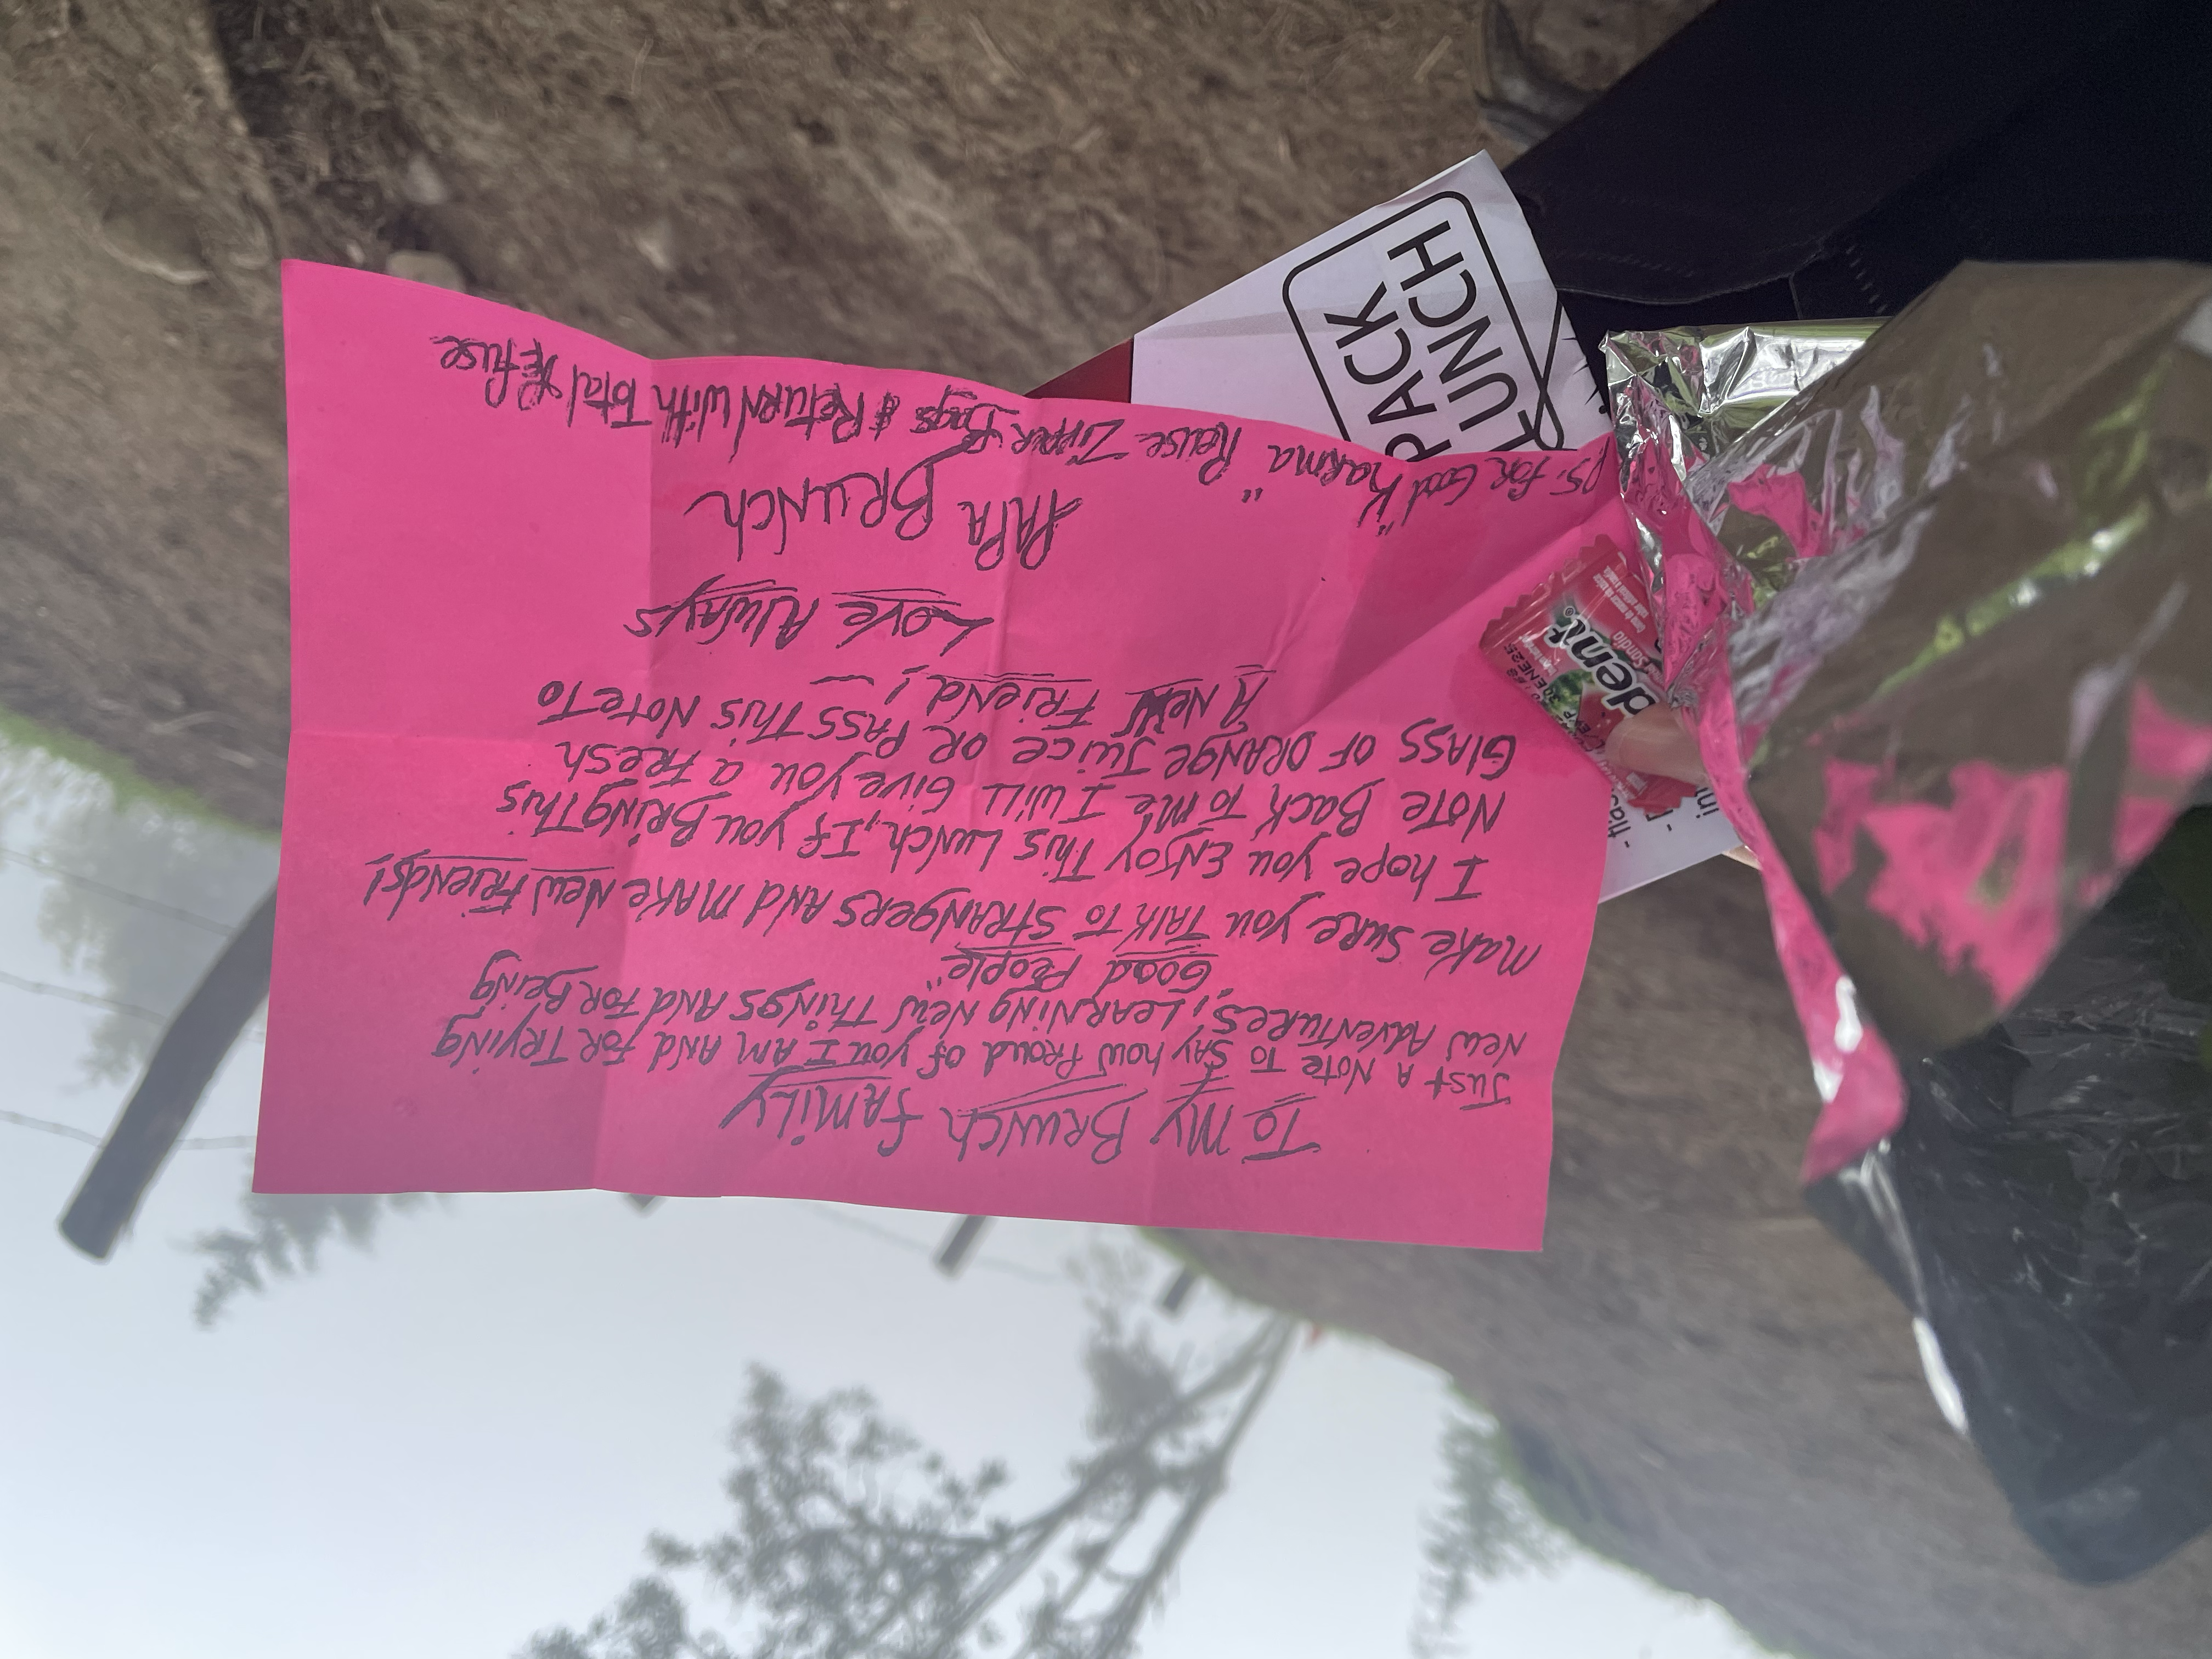 To My Brunch Family
Just A Note To Say how Proud of you I AM AND FOR TRYING
New Adventures, LEARNING NEW THINGS AND FOR BEING
Good People".
Make Sure you TALK TO STRANGERS AND MAKE NEW FRIENDS!
I hope you ENJOY THIS LUNCH, If you BRING THIS
NOTE BACK TO ME I WILL GIVE YOU a FRESH
GLASS OF ORANGE JUICE OR PASS THIS NOTE TO
A NEW FRIEND!
LOVE ALWAYS
PAPA BRUNCH
PS. for Good "Karma" Reuse Zipper Bags & Return with Total Refuse
PACK
LUNCH
dent